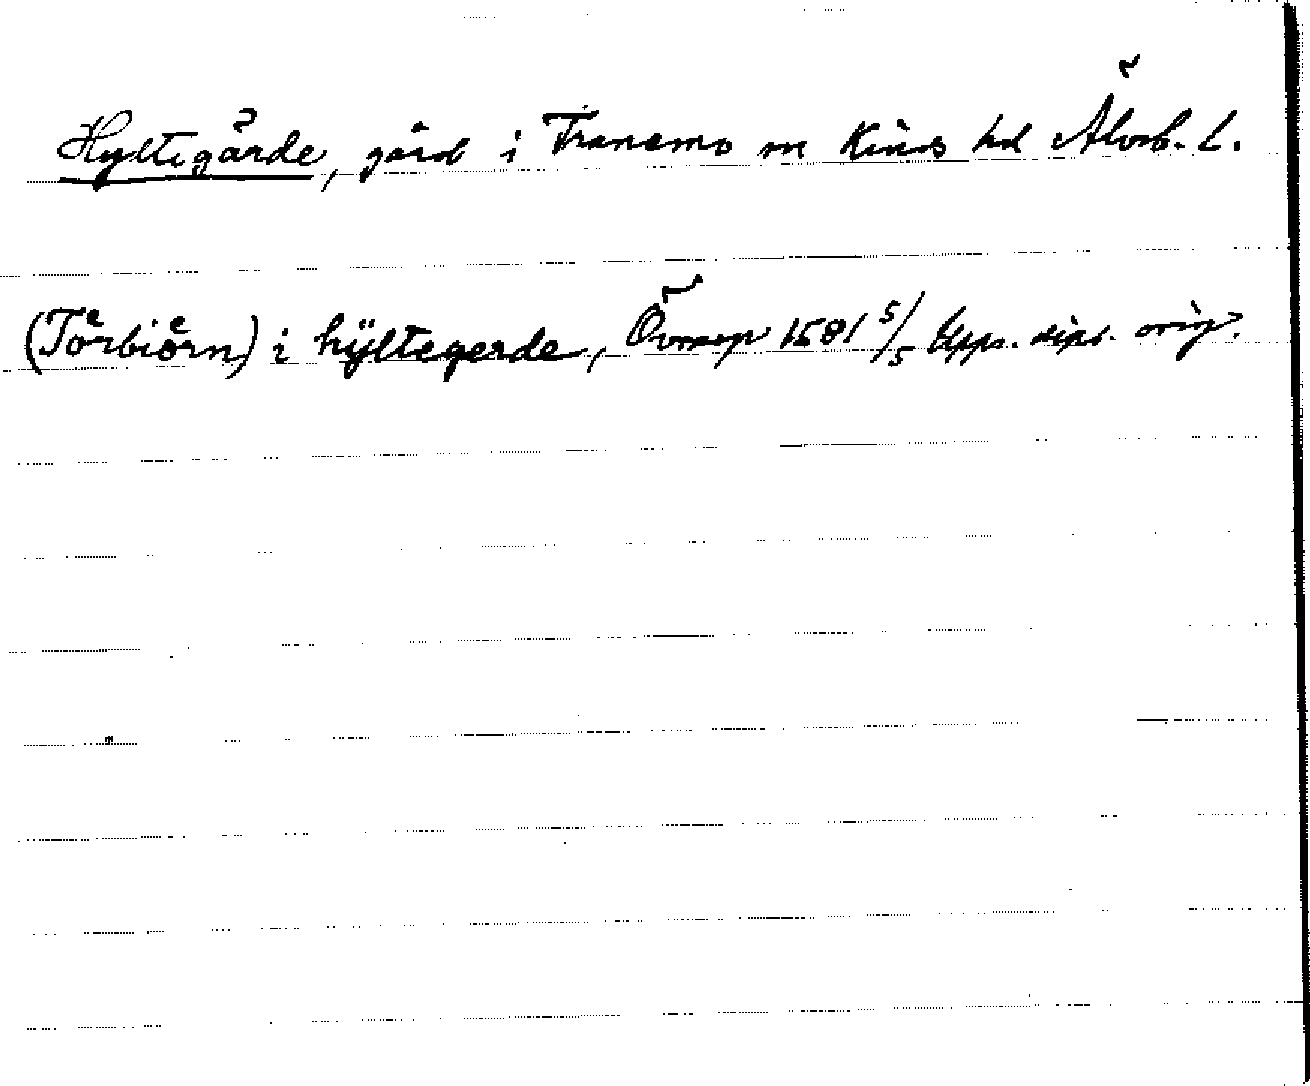 Hyltegärde, gård i Tranemo sn Kinds hd Älvsb. L.
(Toͤrbioͤrn) i hÿltegerde, 1581 5/5 Upps. dipl. orig.